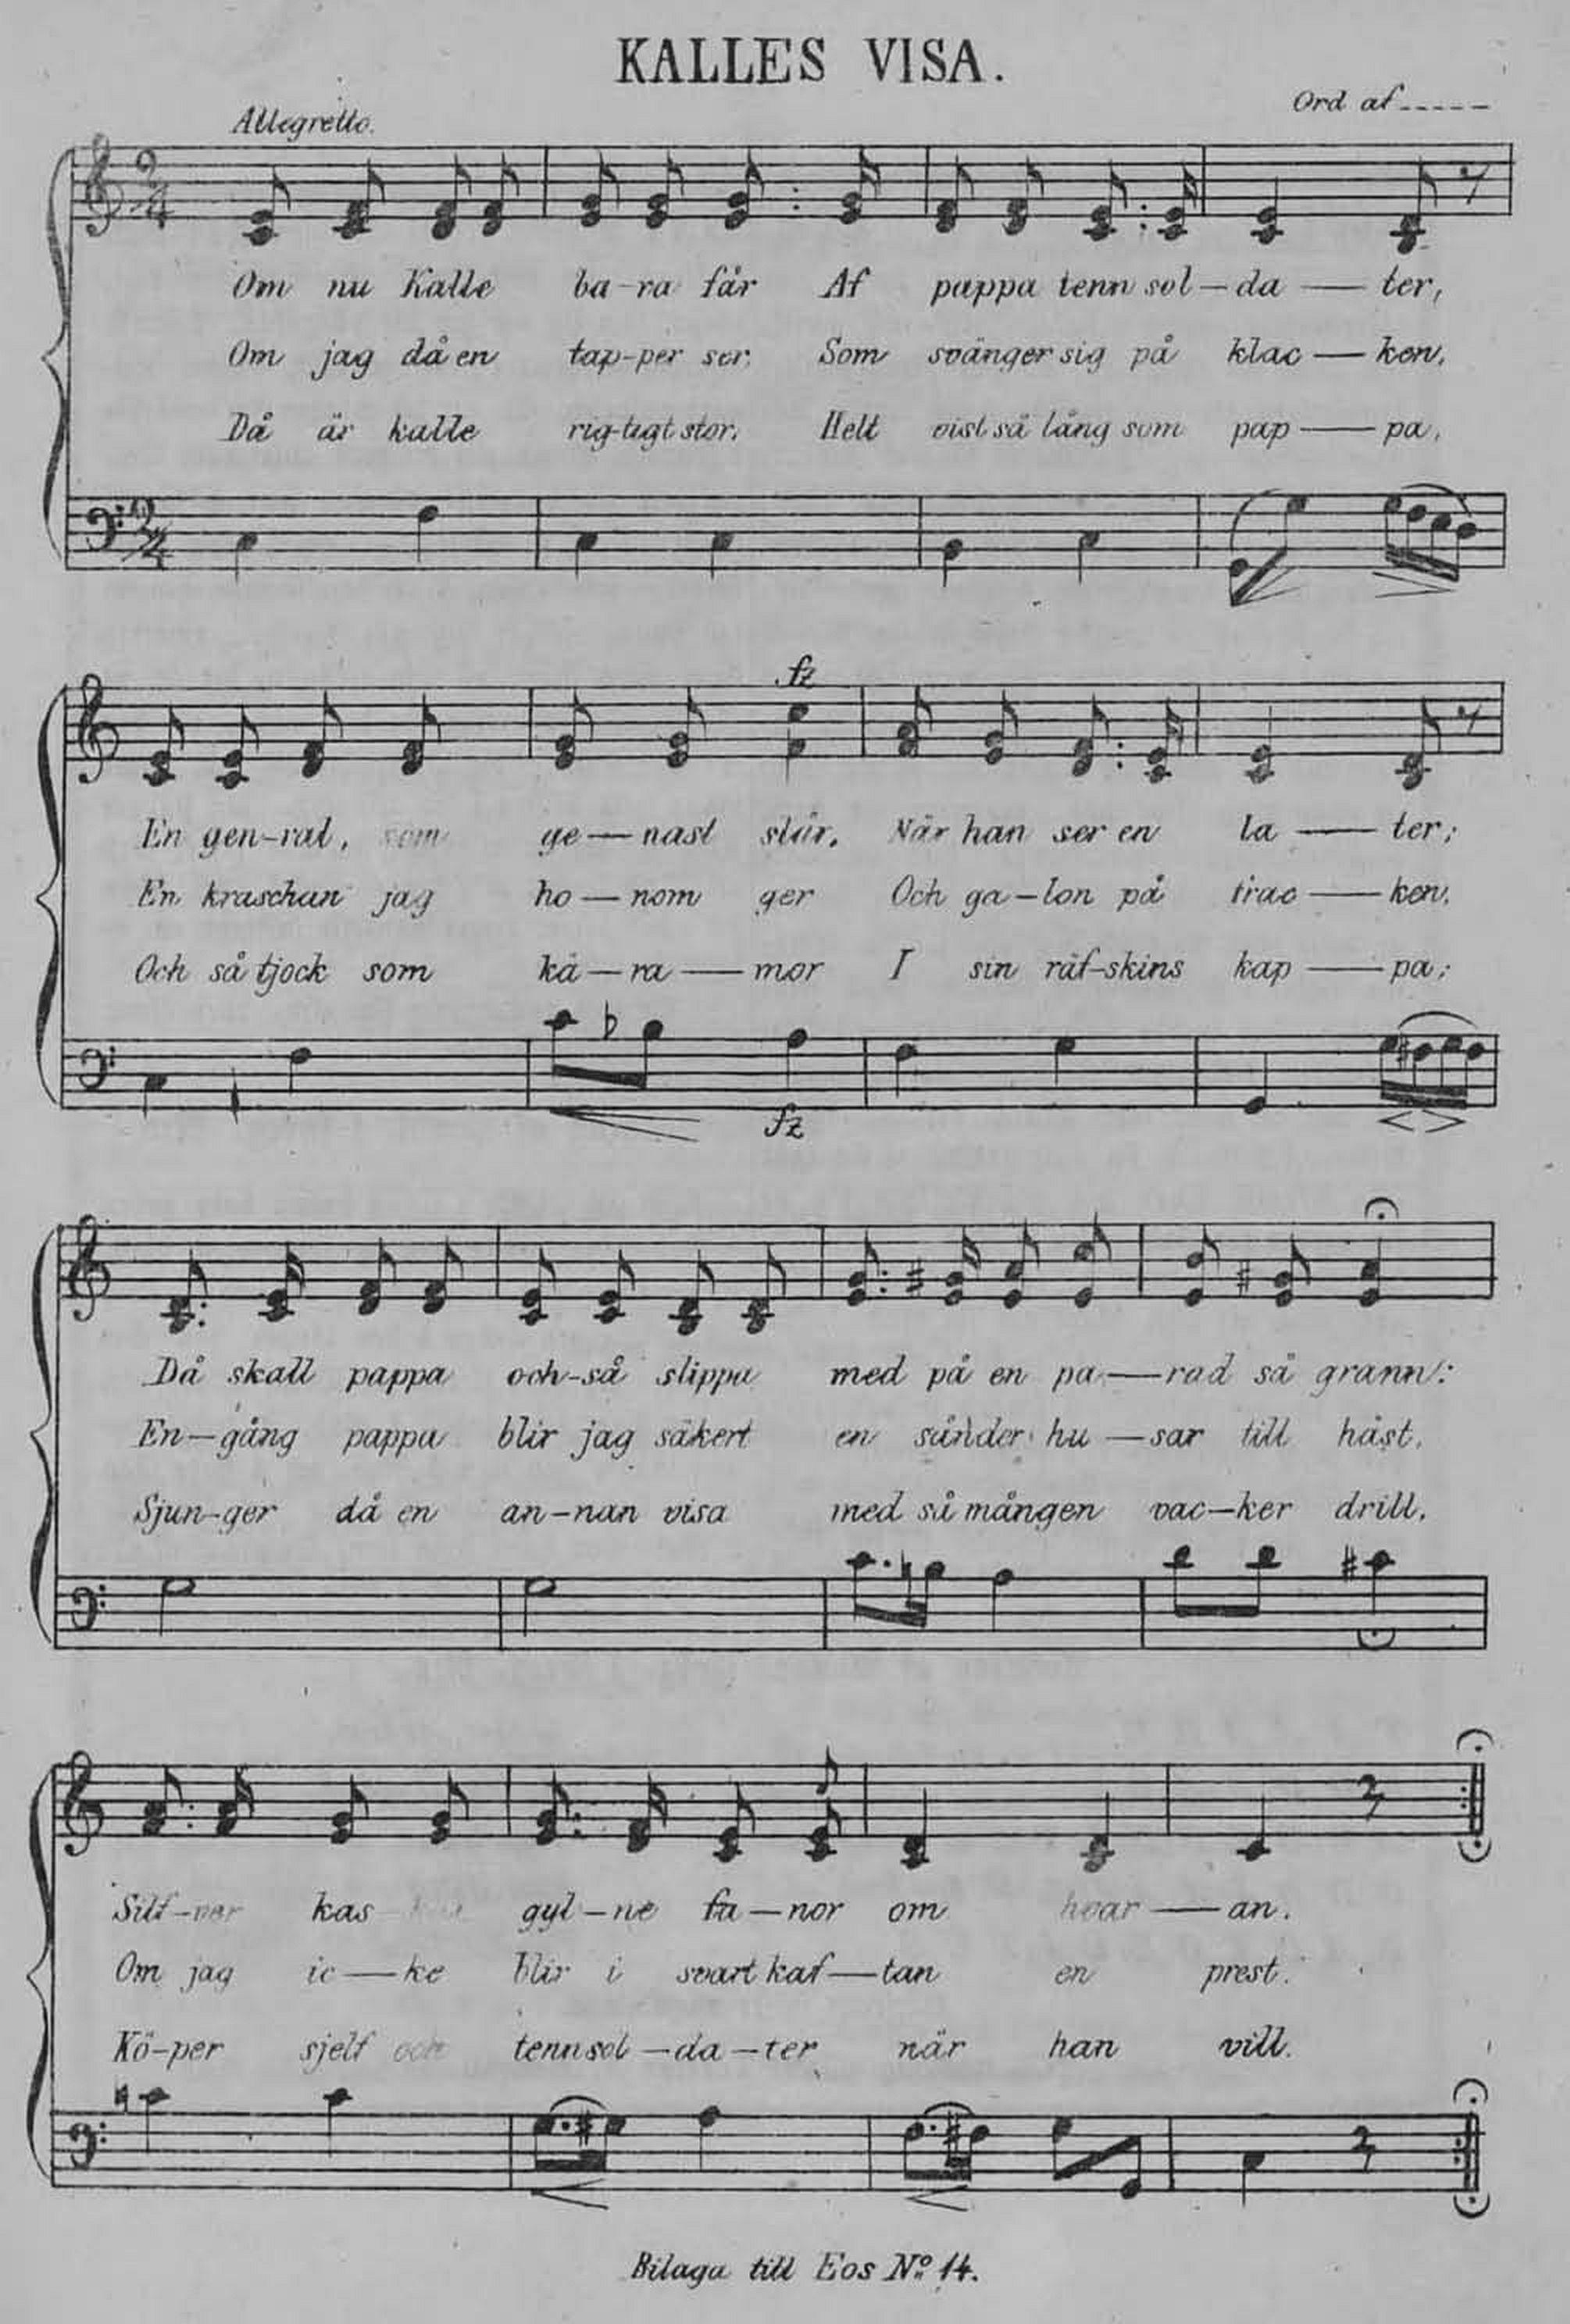 KALLES VISA.
Ord af -----
Allegretto.
2/4
Om nu Kalle ba-ra får Af pappa tenn sol-da-ter,
Om jag då en tap-per ser. Som svänger sig på klac-ken.
Då är kalle rig-tigt stor. Helt visst så lång som pap-pa.
2/4
fz
En gen-ral, som ge-nast slår. När han ser en la-ter;
En kraschan jag ho-nom ger Och ga-lon på frac-ken.
Och så tjock som kä-ra-mor I sin räf-skins kap-pa;
fz
Då skall pappa och-så slippa med på en pa-rad så grann:
En-gång pappa blir jag säkert en sånder hu-sar till häst.
Sjun-ger då en an-nan visa med så mången vac-ker drill.
Silf-ver kas gyl-ne fa-nor om hvar-an.
Om jag ic-ke blir i svart kaf-tan en prest.
Kö-per sjelf och tennsol-da-ter när han vill.
Bilaga till Eos No 14.